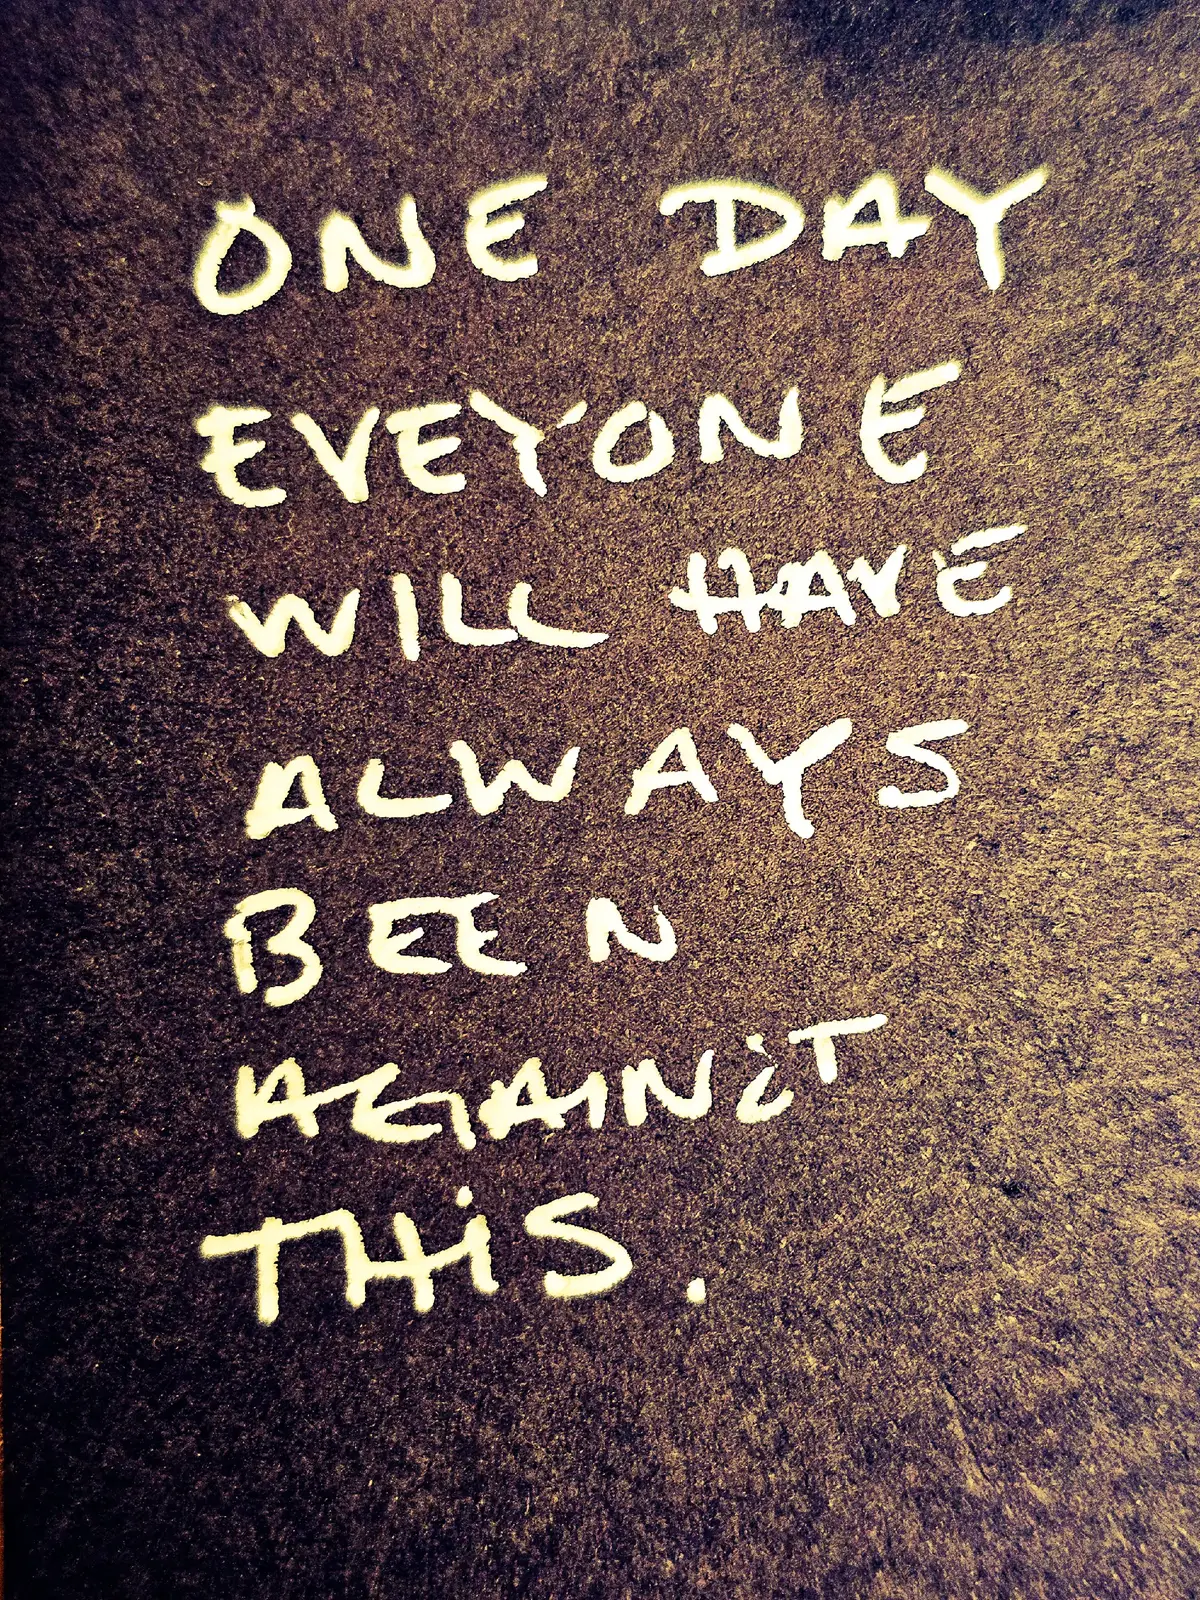 ONE DAY
EVEYONE
WILL HAVE
ALWAYS
BEEN
AGAINST
THiS.